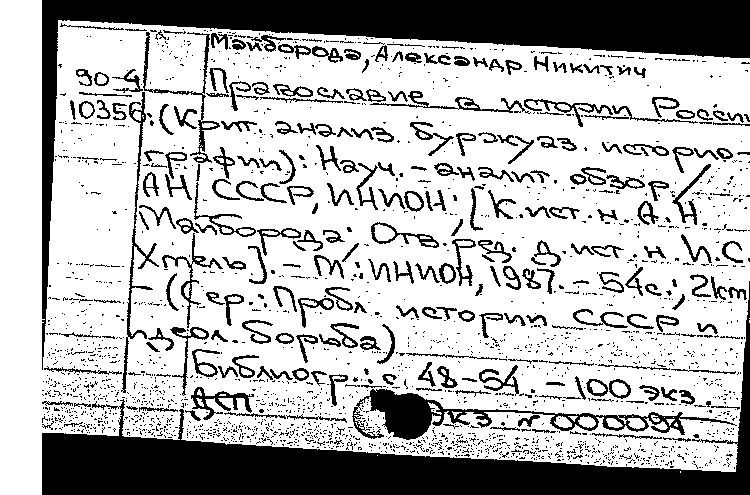 Майборода, Александр Никитич
90-4
Православие в истории России
10356
:(Крит. анализ буржуаз. историо-
графии): Науч.-аналит. обзор /
АН СССР, ИНИОН; [К.ист.н. А.Н.
Майборода; Отв. ред. д.ист.н. И.С.
Хмель]. - М.: ИНИОН, 1987. - 54с.;
- (Сер.: Пробл. истории СССР и
идеол. борьба)
Библиогр.: с. 48-54. - 100 экз.
ДСП. Экз. № 000094.